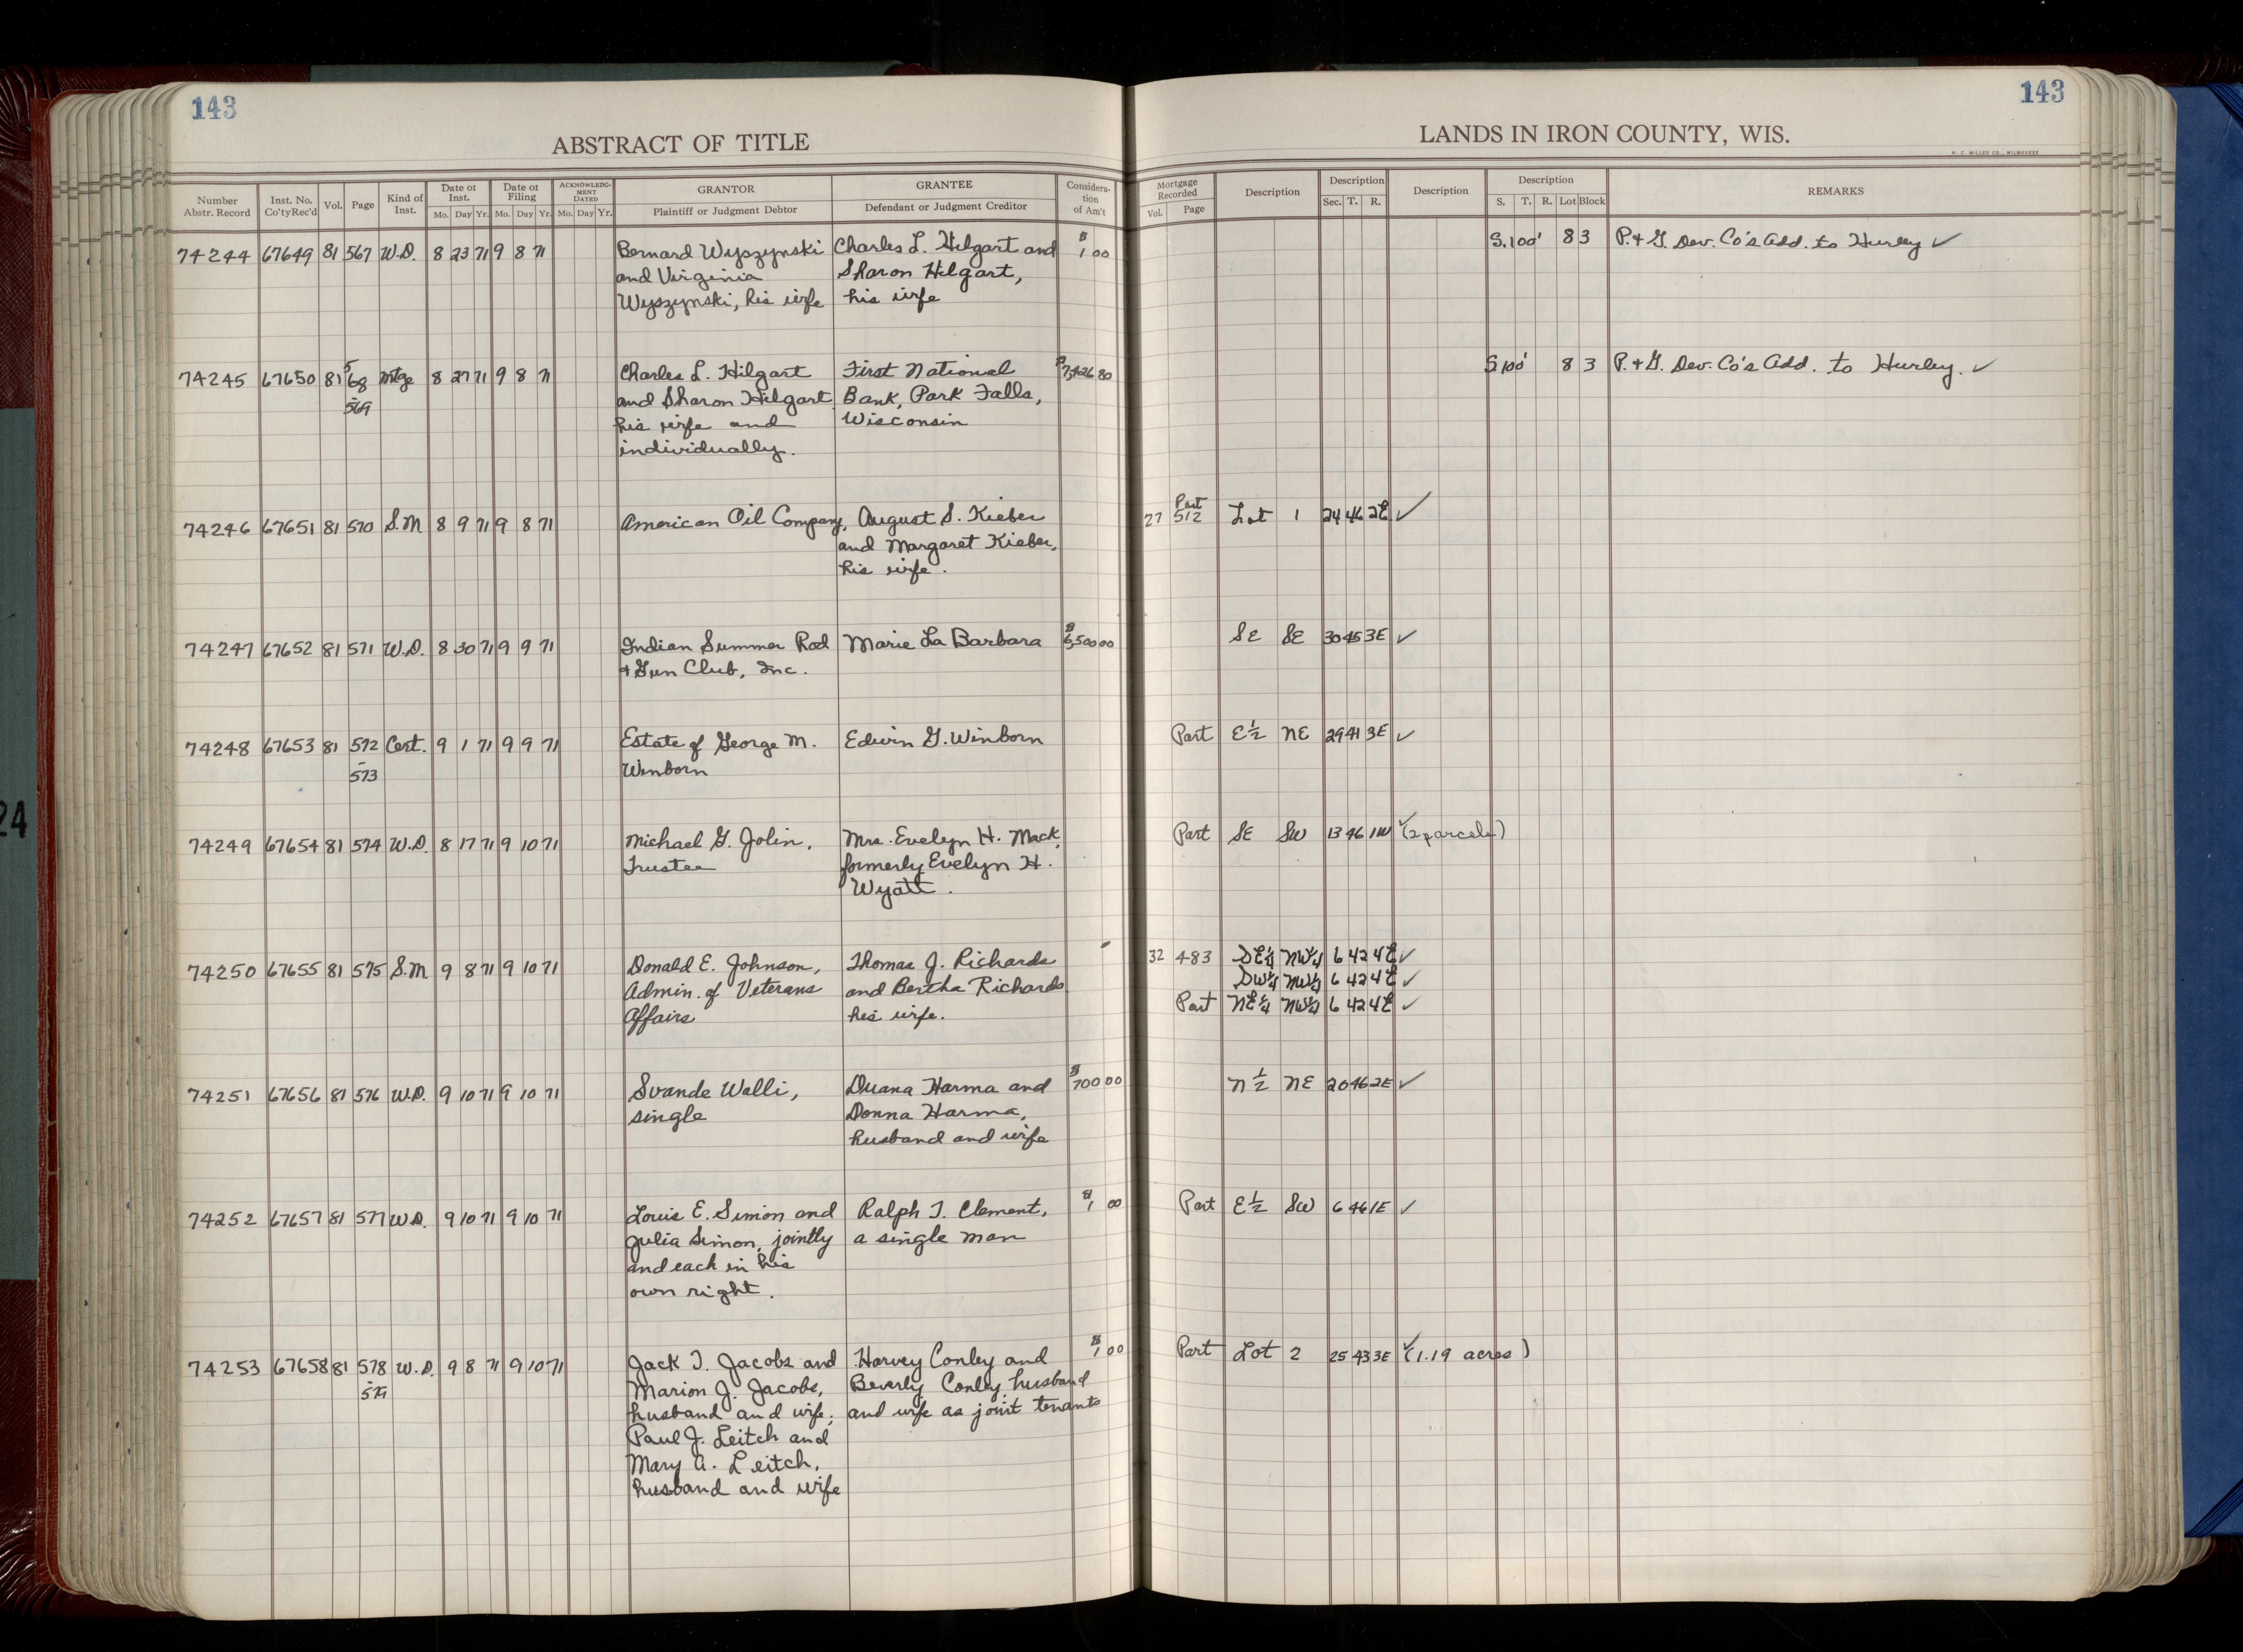 143
143
ABSTRACT OF TITLE
LANDS IN IRON COUNTY, WIS.
H. C. MILLER CO., MILWAUKEE
Number Abstr. Record Inst. No. Co'ty Rec'd Vol. Page Kind of Inst. Date of Inst. Mo. Day Yr. Date of Filing Mo. Day Yr. ACKNOWLEDGMENT DATED Mo. Day Yr. GRANTOR Plaintiff or Judgment Debtor GRANTEE Defendant or Judgment Creditor Consideration of Am't Mortgage Recorded Vol. Page Description Description Sec. T. R. Description Description S. T. R. Lot Block REMARKS
74244 67649 81 567 W.D. 8 23 71 9 8 71 Bernard Wyszynski Charles L. Hilgart and $1 00 S.100' 8 3 P. & G. Dev. Co's Add. to Hurley ✓
and Virginia Sharon Hilgart,
Wyszynski, his wife his wife
74245 67650 81 568 Mtge 8 27 71 9 8 71 Charles L. Hilgart First National $7,426 80 S 100' 8 3 P. & G. Dev. Co's Add. to Hurley. ✓
-569 and Sharon Hilgart Bank, Park Falls,
his wife and Wisconsin
individually.
74246 67651 81 570 S.M 8 9 71 9 8 71 American Oil Company, August S. Kieber 27 Part 512 Lot 1 24 46 2E ✓
and Margaret Kieber,
his wife.
74247 67652 81 571 W.D. 8 30 71 9 9 71 Indian Summer Rod Marie La Barbara $6,500 00 SE SE 30 45 3E ✓
& Gun Club, Inc.
74248 67653 81 572 Cert. 9 1 71 9 9 71 Estate of George M. Edwin G. Winborn Part E½ NE 29 41 3E ✓
-573 Winborn
74249 67654 81 574 W.D. 8 17 71 9 10 71 Michael G. Jolin, Mrs. Evelyn H. Mack, Part SE SW 13 46 1W ✓ (2 parcels)
Trustee formerly Evelyn H.
Wyatt.
74250 67655 81 575 S.M 9 8 71 9 10 71 Donald E. Johnson, Thomas J. Richards 32 483 SE¼ NW¼ 6 42 4E ✓
Admin. of Veterans and Bertha Richards SW¼ NW¼ 6 42 4E ✓
Affairs his wife. Part NE¼ NW¼ 6 42 4E ✓
74251 67656 81 576 W.D. 9 10 71 9 10 71 Svande Walli, Duana Harma and $700 00 N½ NE 20 46 2E ✓
single Donna Harma,
husband and wife
74252 67657 81 577 W.D. 9 10 71 9 10 71 Louis E. Simon and Ralph T. Clement, $1 00 Part E½ SW 6 46 1E ✓
Julia Simon, jointly a single man
and each in his
own right.
74253 67658 81 578 W.D. 9 8 71 9 10 71 Jack T. Jacobs and Harvey Conley and $1 00 Part Lot 2 25 43 3E ✓ (1.19 acres)
-579 Marion J. Jacobs, Beverly Conley husband
husband and wife; and wife as joint tenants
Paul J. Leitch and
Mary A. Leitch,
husband and wife
24